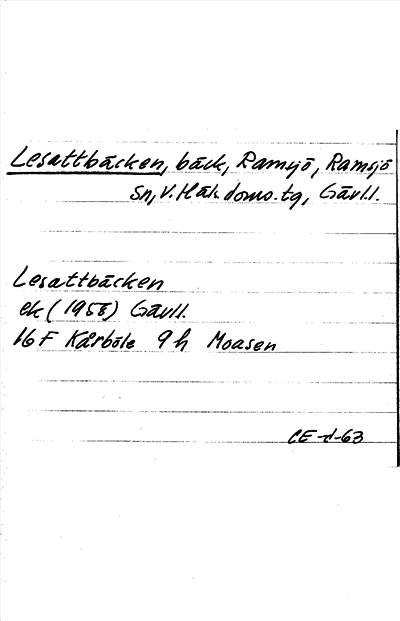 Lesattbäcken, bäck, Ramsjö, Ramsjö
sn, V. Häls. doms. tg, Gävl.l.
Lesattbäcken
ek (1958) Gävl.l.
16 F Kårböle 9 h Moasen
CE-d-63